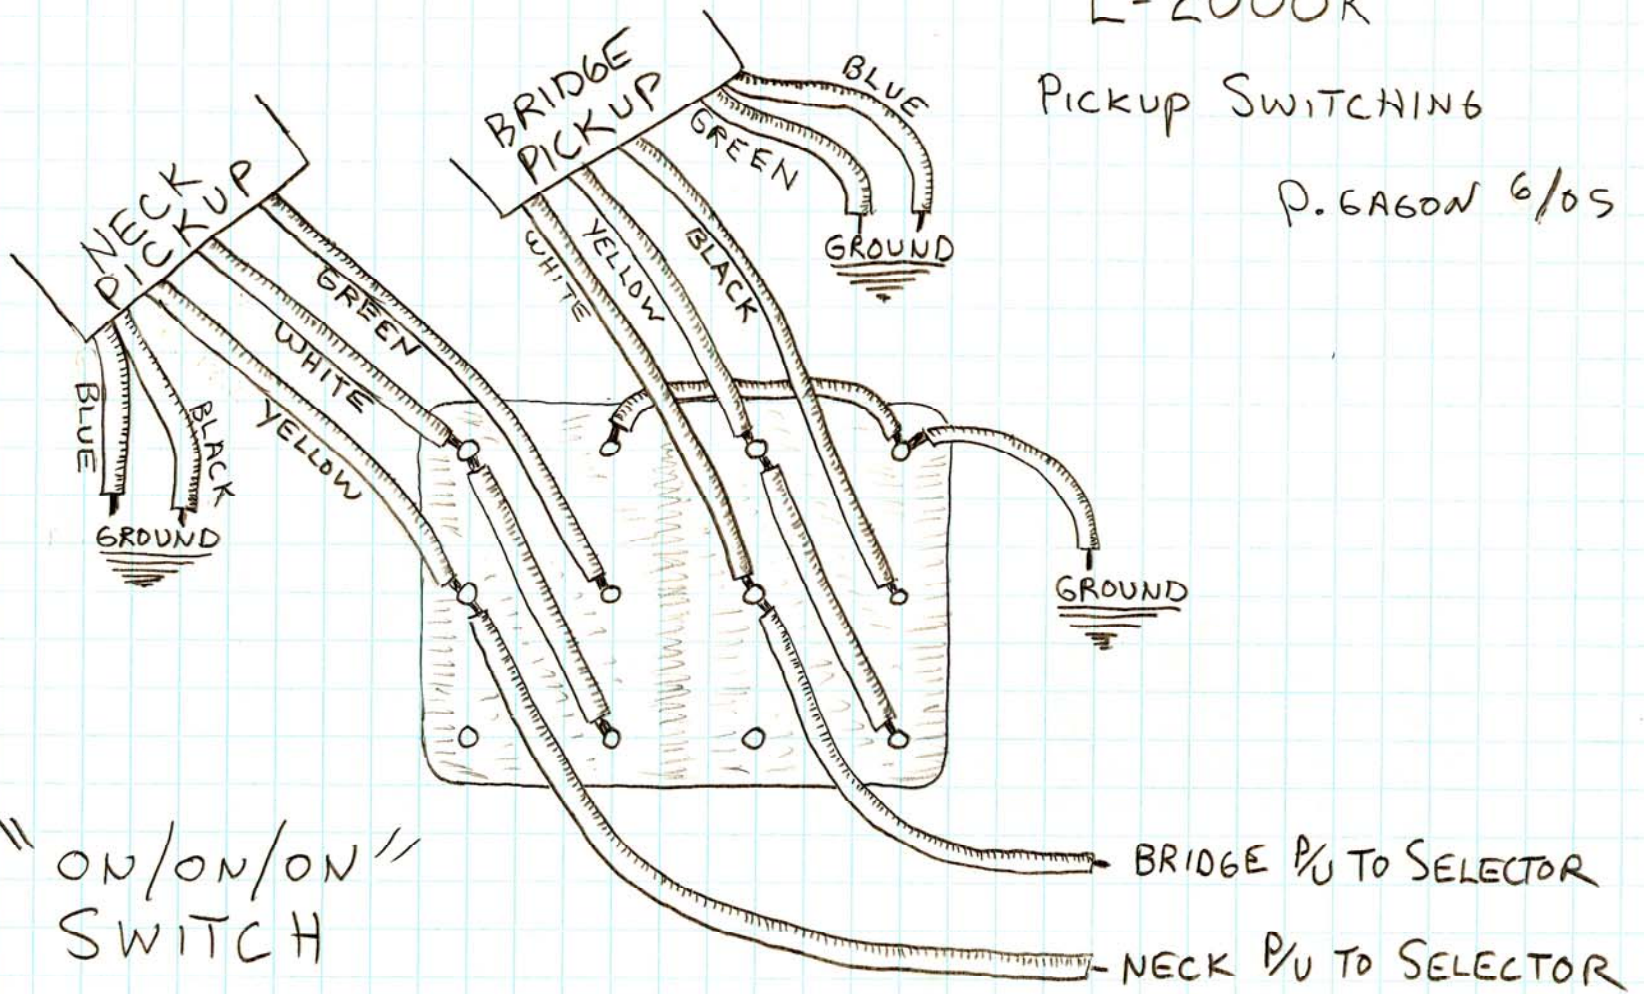 L-2000R
PICKUP SWITCHING
P. GAGON 6/05
BRIDGE
PICKUP
BLUE
GREEN
GROUND
WHITE
YELLOW
BLACK
NECK
PICKUP
GREEN
WHITE
YELLOW
BLUE
BLACK
GROUND
GROUND
"ON/ON/ON"
SWITCH
BRIDGE P/U TO SELECTOR
NECK P/U TO SELECTOR